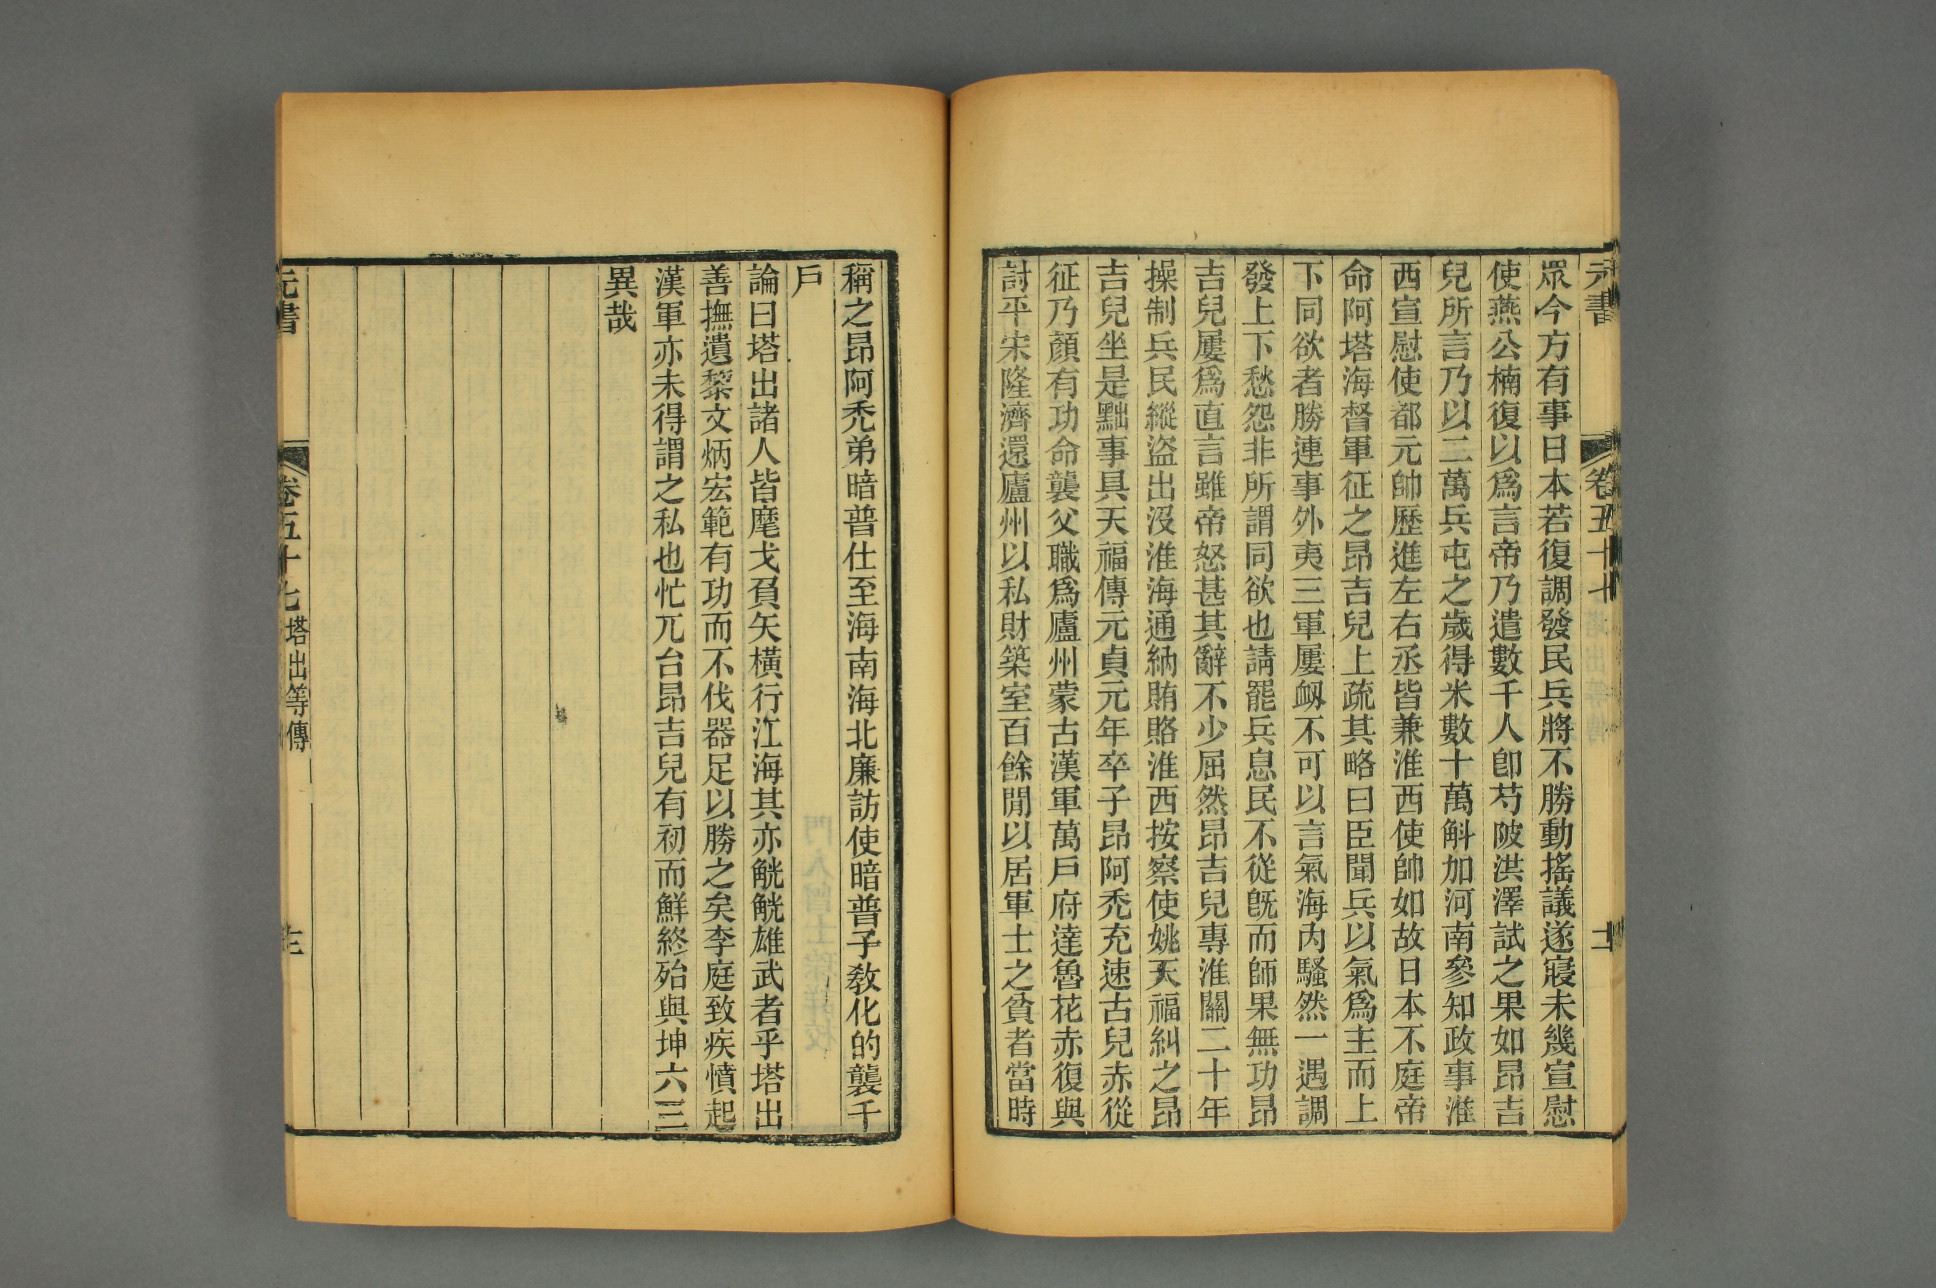 元書
卷五十七
十二
眾今方有事日本若復調發民兵將不勝動搖議遂寢未幾宣慰
使燕公楠復以爲言帝乃遣數千人卽芍陂洪澤試之果如昂吉
兒所言乃以二萬兵屯之歲得米數十萬斛加河南參知政事淮
西宣慰使都元帥歷進左右丞皆兼淮西使帥如故日本不庭帝
命阿塔海督軍征之昂吉兒上疏其略曰臣聞兵以氣爲主而上
下同欲者勝連事外夷三軍屢衂不可以言氣海內騷然一遇調
發上下愁怨非所謂同欲也請罷兵息民不從旣而師果無功昂
吉兒屢爲直言雖帝怒甚其辭不少屈然昂吉兒專淮關二十年
操制兵民縱盜出沒淮海通納賄賂淮西按察使姚天福糾之昂
吉兒坐是黜事具天福傳元貞元年卒子昂阿禿充速古兒赤從
征乃顏有功命襲父職爲廬州蒙古漢軍萬戶府達魯花赤復與
討平宋隆濟還廬州以私財築室百餘閒以居軍士之貧者當時
稱之昂阿禿弟暗普仕至海南海北廉訪使暗普子教化的襲千
戶
論曰塔出諸人皆麾戈負矢橫行江海其亦觥觥雄武者乎塔出
善撫遺黎文炳宏範有功而不伐器足以勝之矣李庭致疾憤起
漢軍亦未得謂之私也忙兀台昂吉兒有初而鮮終殆與坤六三
異哉
元書
卷五十七 塔出等傳
十三